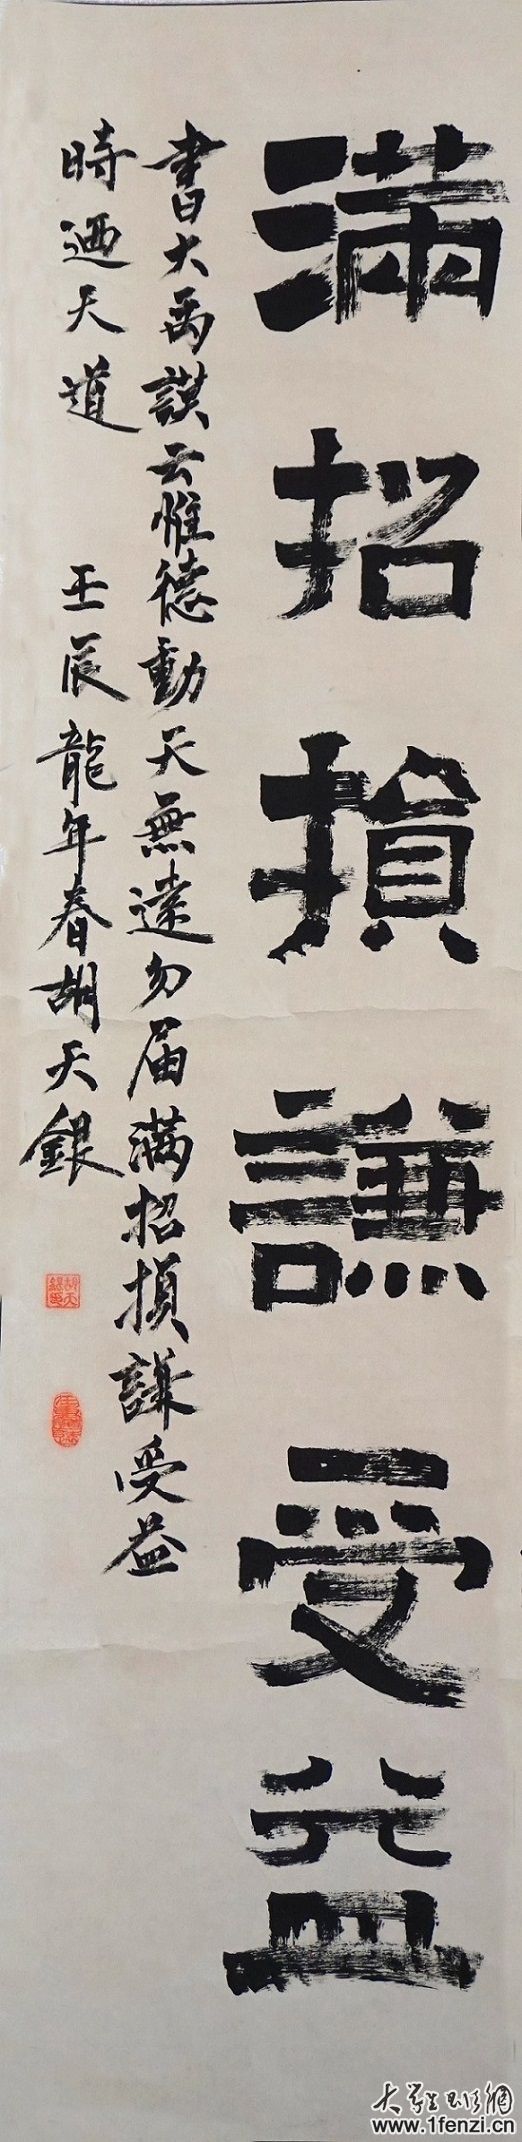 滿招損謙受益
書大禹謨云惟德動天無遠勿届滿招損謙受益
時迺天道 壬辰龍年春胡天銀
大学生书法網
www.1fenzi.cn